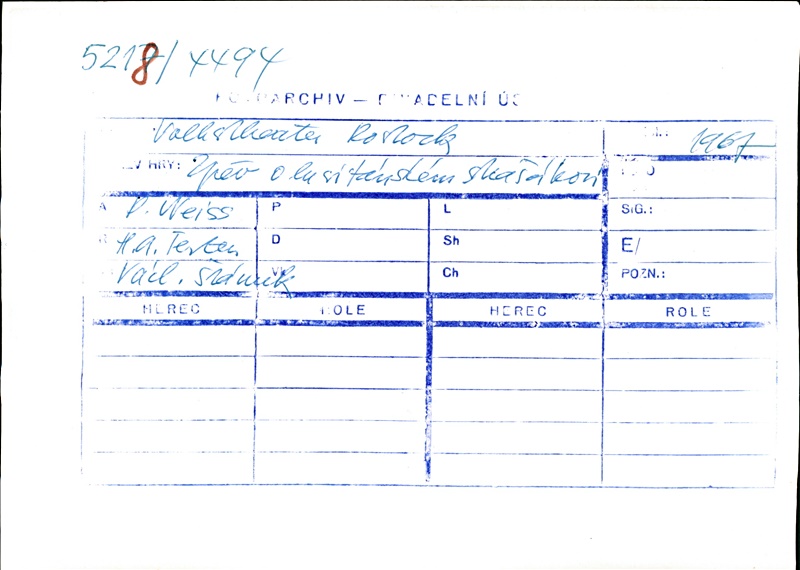 5218/4494
FOTOARCHIV – DIVADELNÍ ÚS
Volkstheater Rostock 1967
EV HRY: Zpěv o lusitánském strašákovi
A P. Weiss P L SIG.:
H.A. Perten D Sh E/
Václ. Ch POZN.:
HEREC ROLE HEREC ROLE